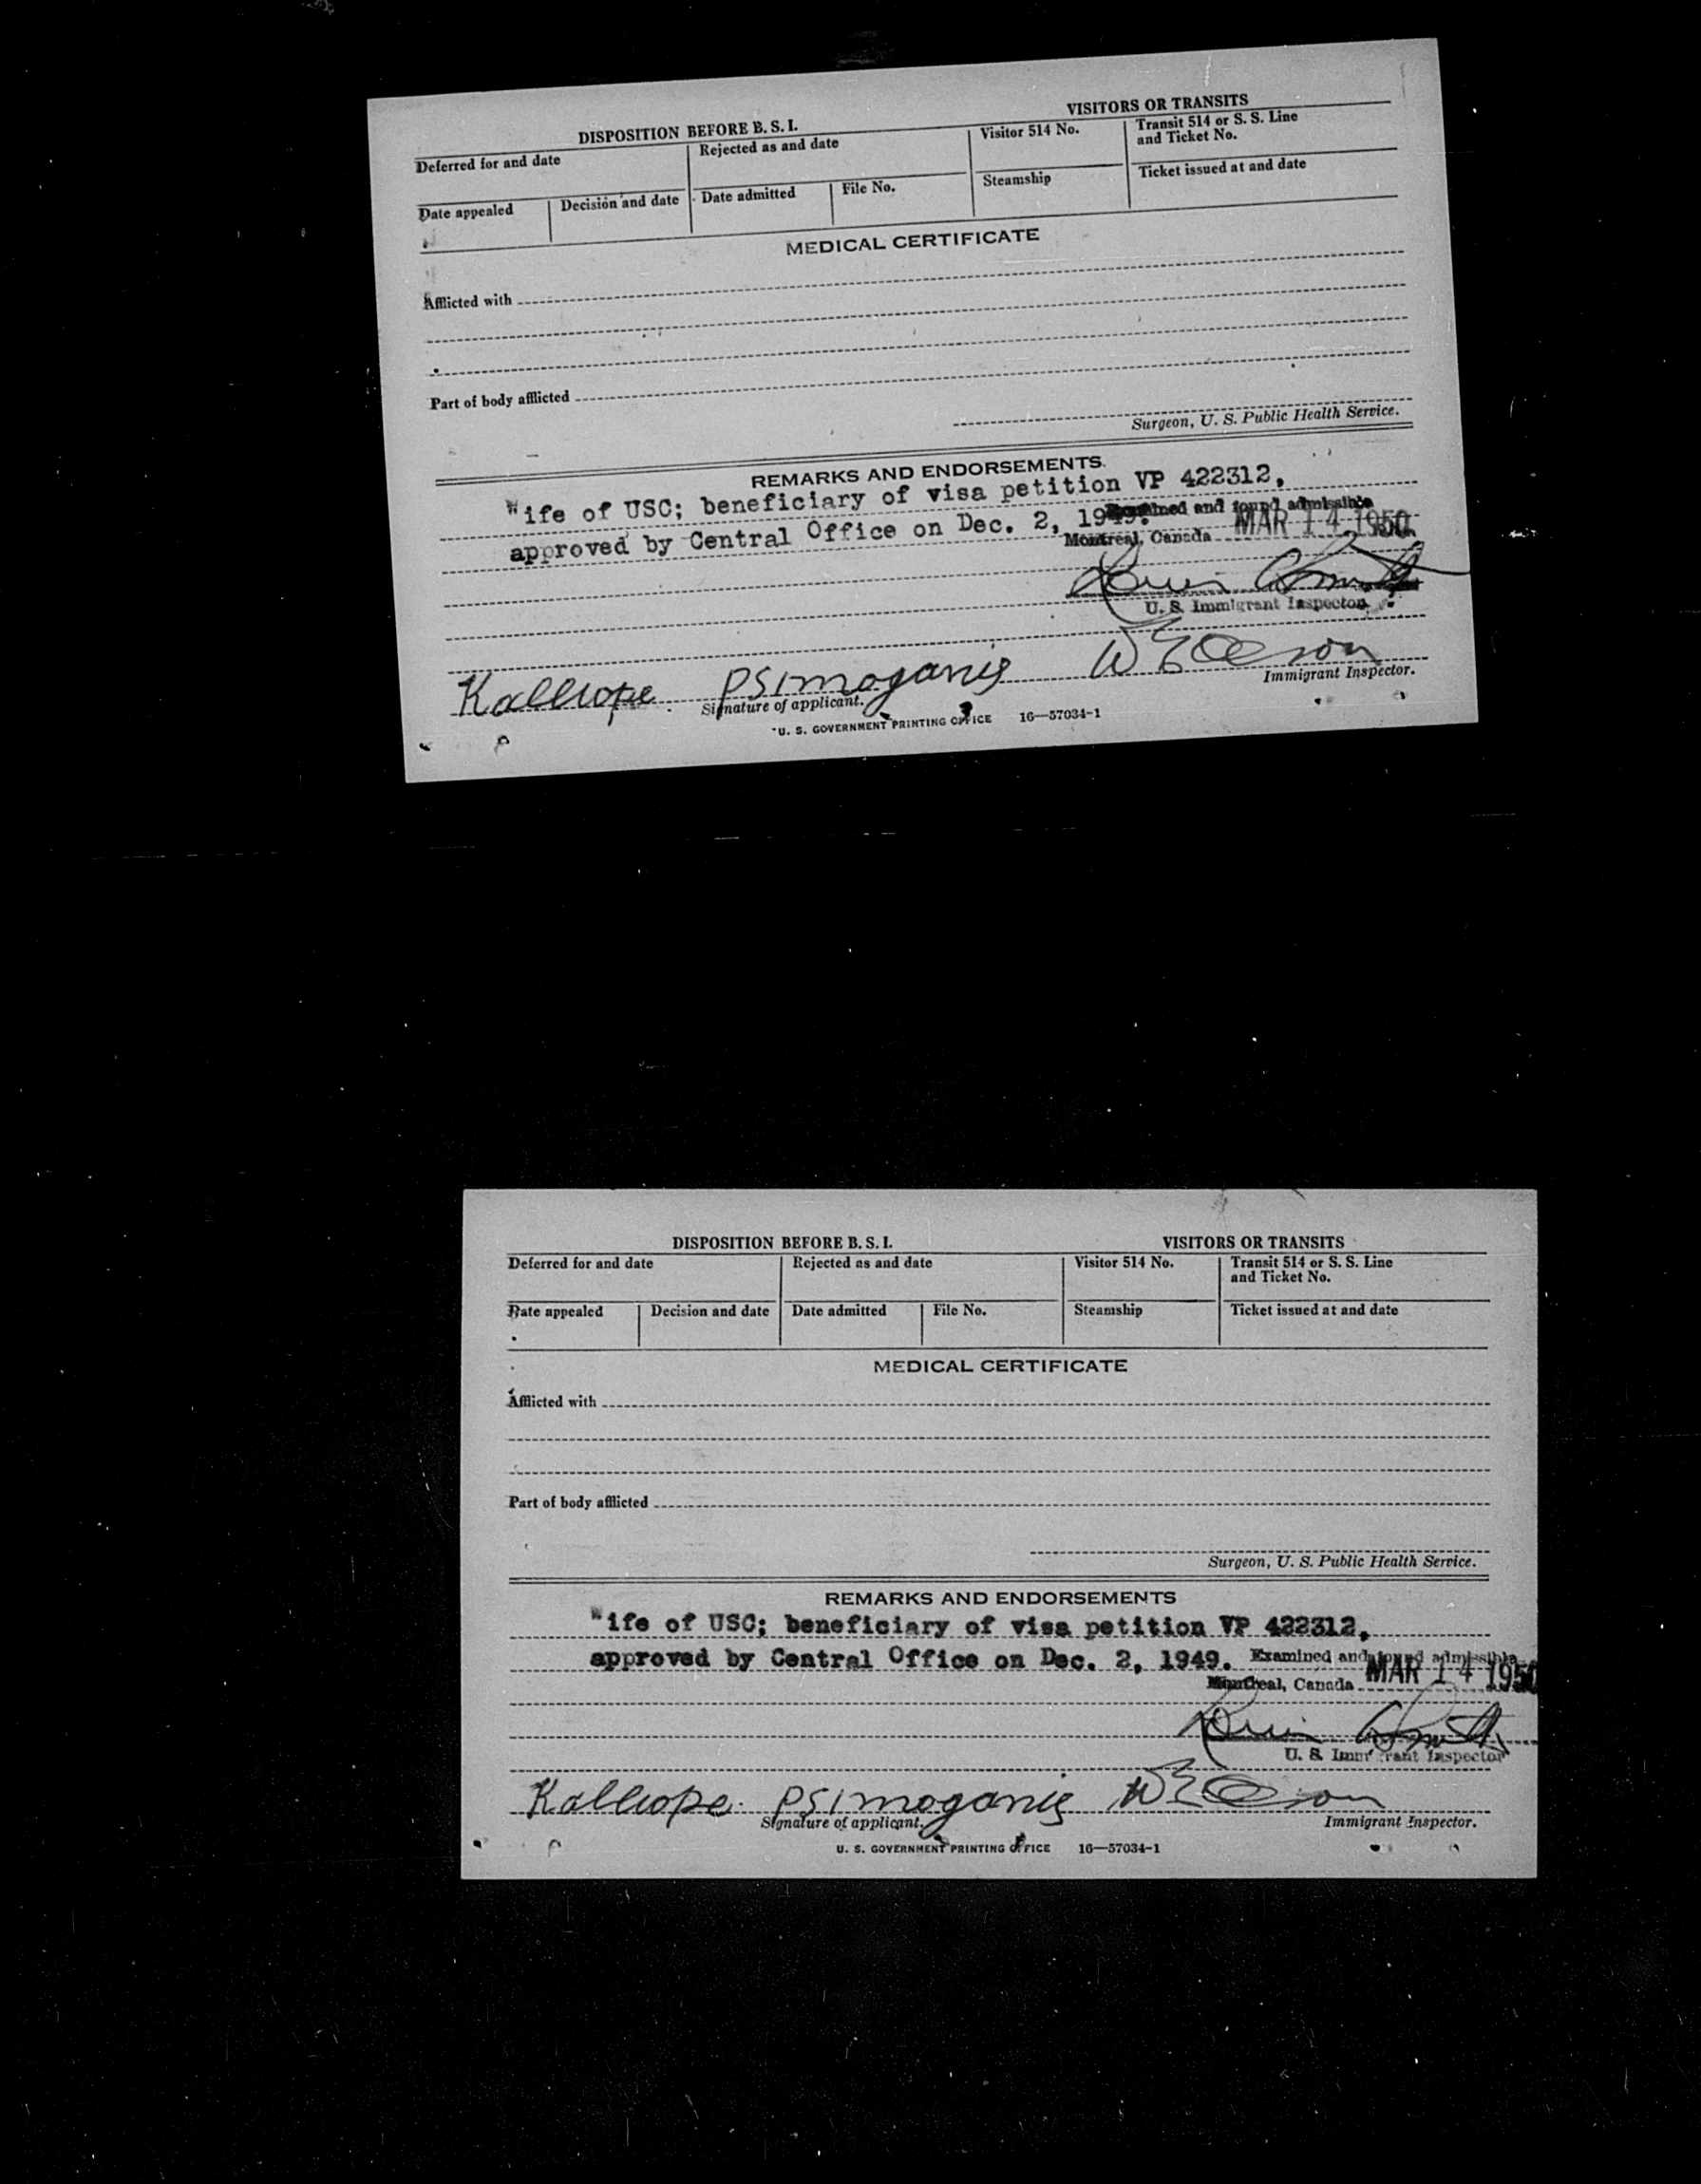 DISPOSITION BEFORE B. S. I.
VISITORS OR TRANSITS
Deferred for and date
Rejected as and date
Visitor 514 No.
Transit 514 or S. S. Line
and Ticket No.
Date appealed
Decision and date
Date admitted
File No.
Steamship
Ticket issued at and date
MEDICAL CERTIFICATE
Afflicted with
Part of body afflicted
Surgeon, U. S. Public Health Service.
REMARKS AND ENDORSEMENTS
Wife of USC; beneficiary of visa petition VP 422312,
approved by Central Office on Dec. 2, 1949.
Examined and found admissible
Montreal, Canada MAR 14 1950
U. S. Immigrant Inspector
Kalliope Psimoganis
Signature of applicant.
Immigrant Inspector.
U. S. GOVERNMENT PRINTING OFFICE 16—57034-1
DISPOSITION BEFORE B. S. I.
VISITORS OR TRANSITS
Deferred for and date
Rejected as and date
Visitor 514 No.
Transit 514 or S. S. Line
and Ticket No.
Date appealed
Decision and date
Date admitted
File No.
Steamship
Ticket issued at and date
MEDICAL CERTIFICATE
Afflicted with
Part of body afflicted
Surgeon, U. S. Public Health Service.
REMARKS AND ENDORSEMENTS
Wife of USC; beneficiary of visa petition VP 422312,
approved by Central Office on Dec. 2, 1949.
Examined and found admissible
Montreal, Canada MAR 14 1950
U. S. Immigrant Inspector
Kalliope Psimoganis
Signature of applicant.
Immigrant Inspector.
U. S. GOVERNMENT PRINTING OFFICE 16—57034-1